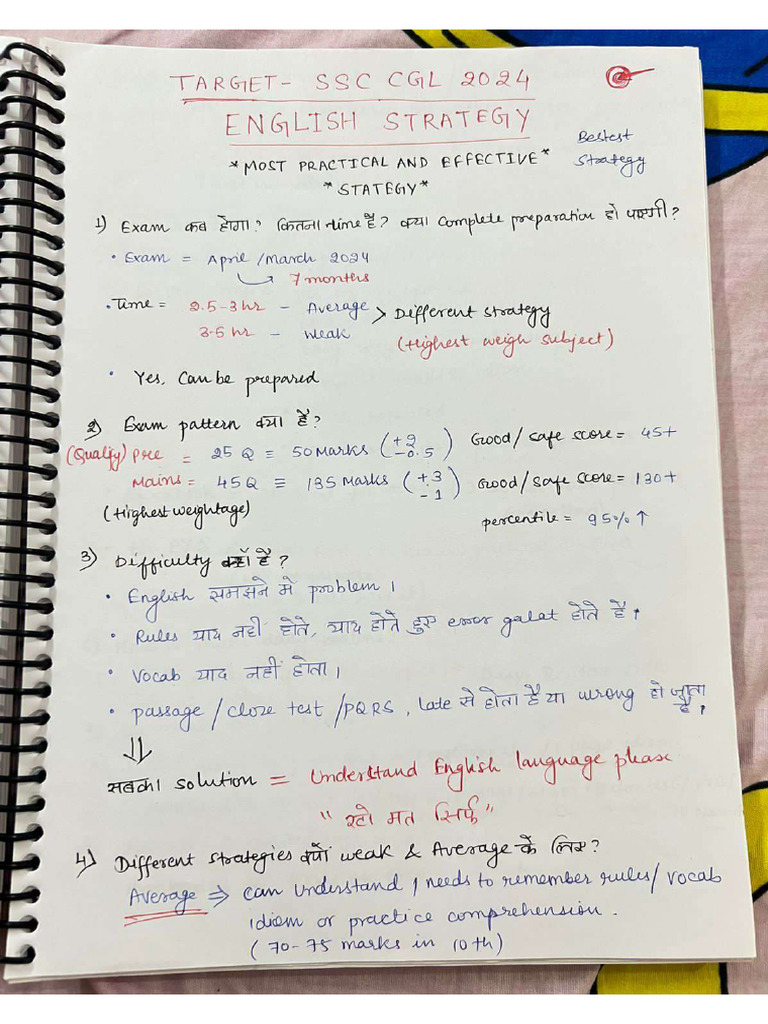 TARGET- SSC CGL 2024
ENGLISH STRATEGY
Bestest
Strategy
*MOST PRACTICAL AND EFFECTIVE*
*STATEGY*
1) Exam कब होगा? कितना time है? क्या complete preparation हो पाएगी?
• Exam = April /March 2024
7 months
• Time = 2.5-3 hr - Average > Different strategy
3-5 hr - Weak (Highest weigh subject)
• Yes, Can be prepared
2) Exam pattern क्या है?
(Qualify) Pre = 25 Q ≡ 50 Marks (+2 -0.5) Good/ safe score = 45+
Mains = 45 Q ≡ 135 Marks (+3 -1) Good/safe score = 130+
(Highest weightage) percentile = 95% ↑
3) Difficulty है?
• English समझने मे problem।
• Rules याद नहीं होते, याद होते हुए error galat होते है।
• Vocab याद नहीं होता।
• passage / cloze test /PQRS, late से होता है या wrong हो जाता है।
⇓
सबका solution = Understand English language phase
"रटो मत सिर्फ"
4) Different strategies क्यों weak & Average के लिए?
Average ⇒ can understand, needs to remember rules/ vocab
idiom or practice comprehension.
(70-75 marks in 10th)